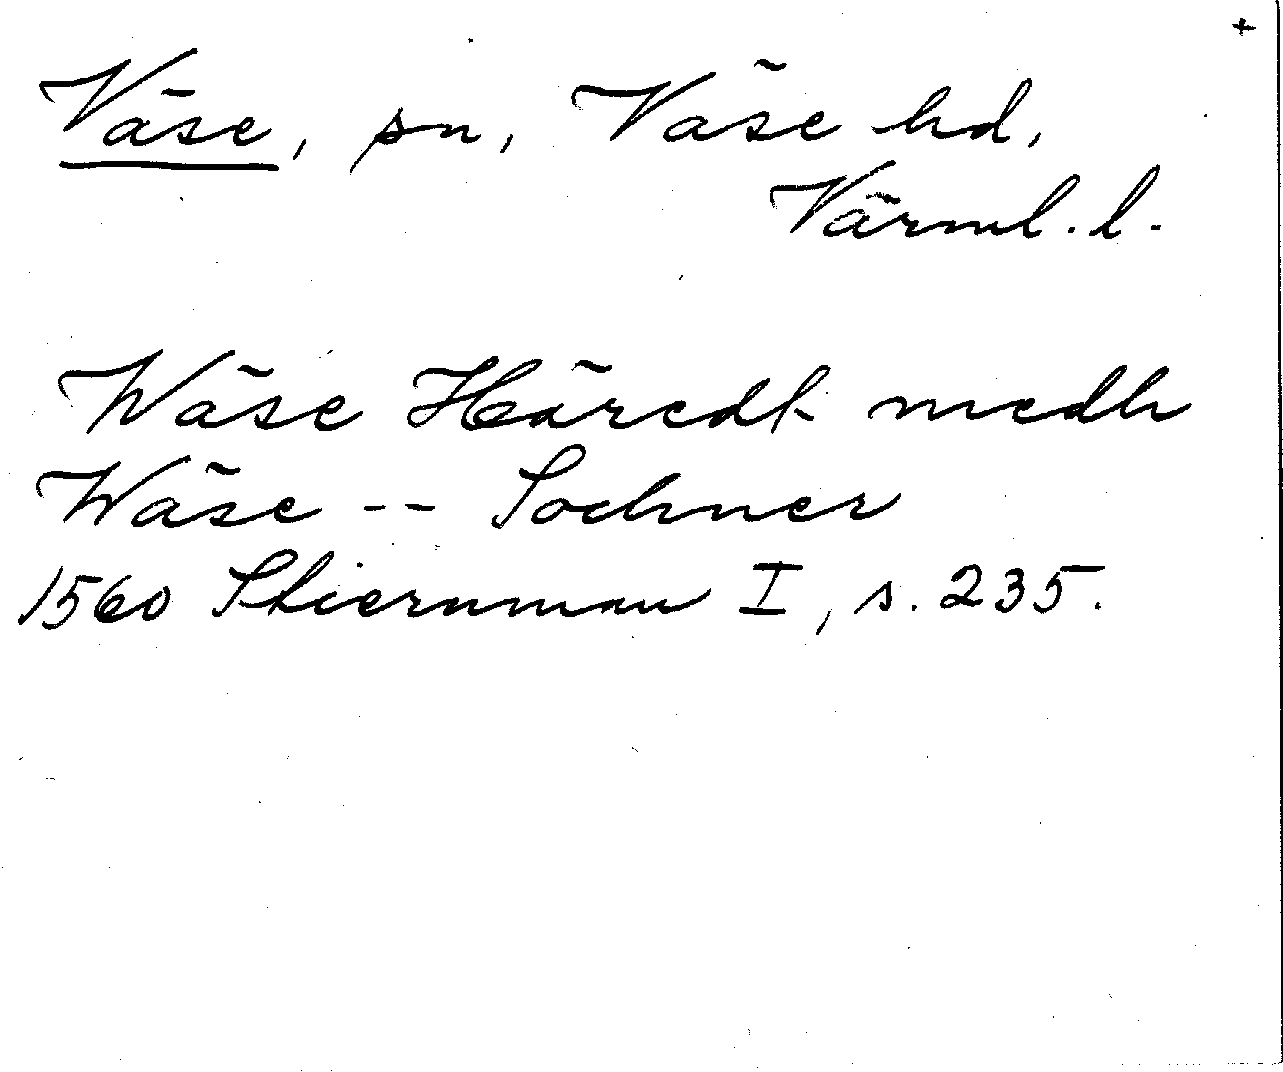 +
Väse, sn, Väse hd,
Värml. l.
Wäse Häredt medh
Wäse -- Sochner
1560 Stiernman I, s. 235.